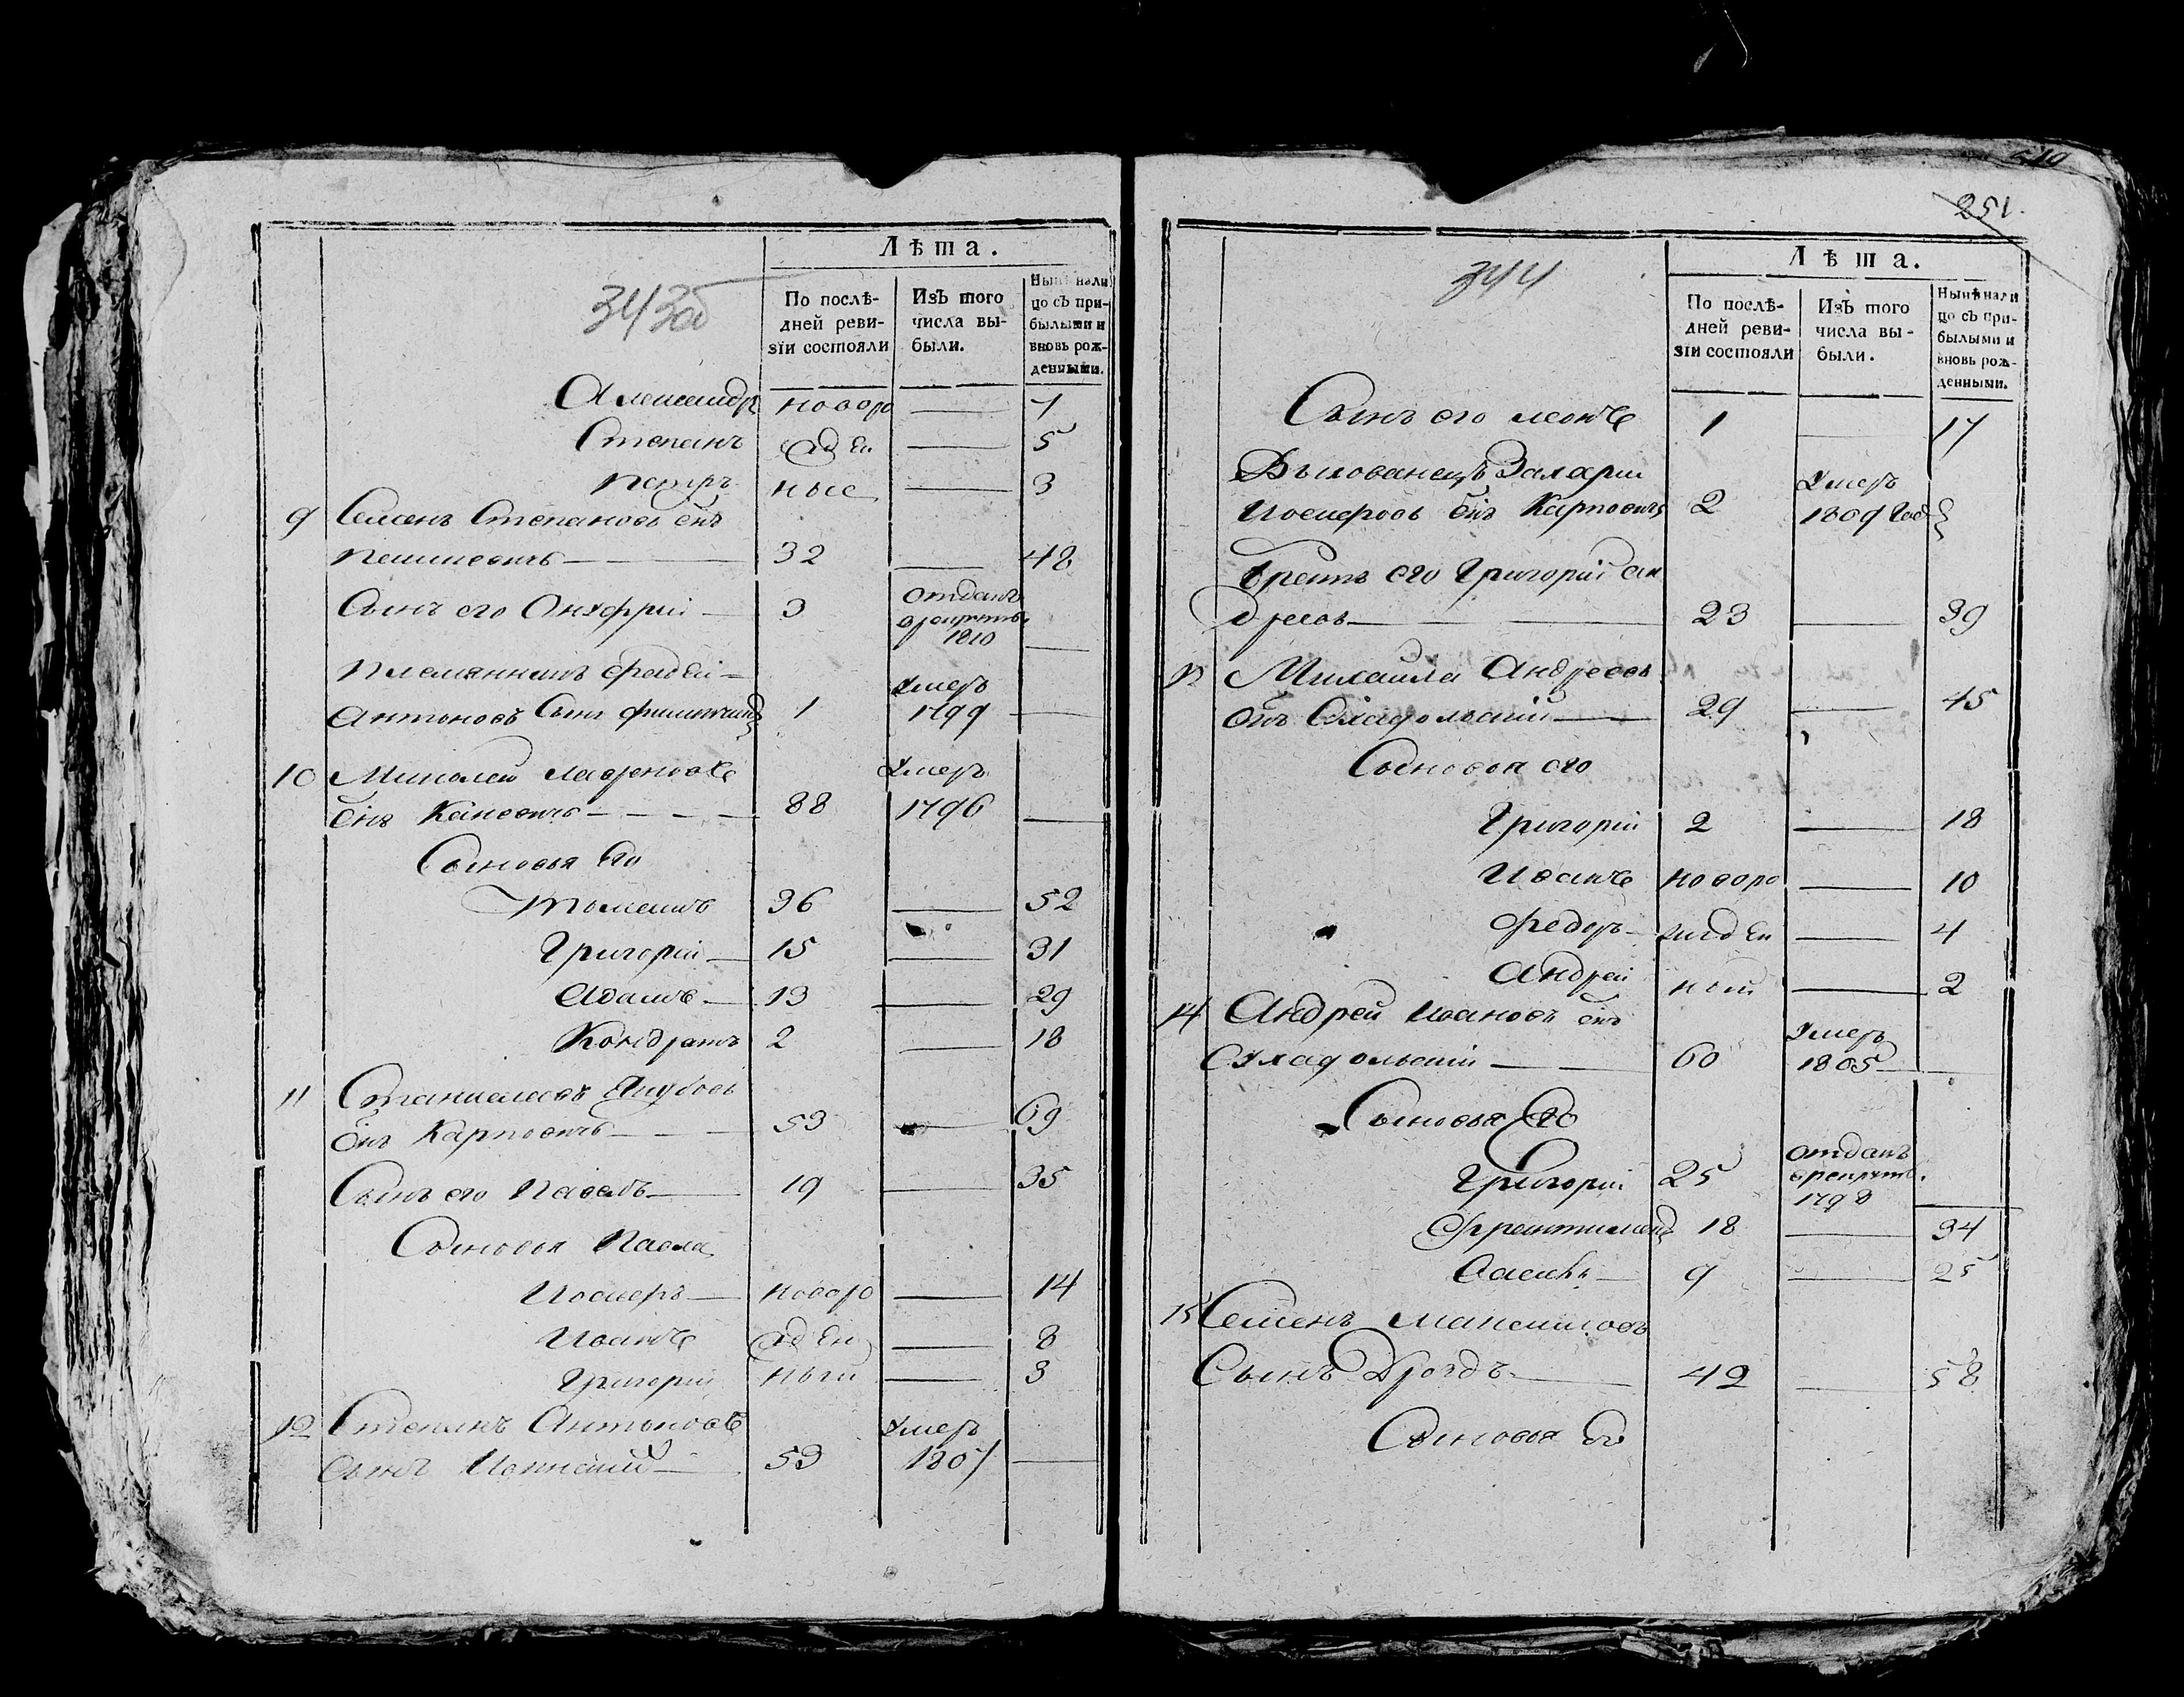 343об
Лѣта.
По послѣ-
дней реви-
зіи состояли
Изъ того
числа вы-
были.
Нынѣ нали
цо съ при-
былыми и
вновь рож-
денными.
Александр новоро — 7
Степанъ жден — 5
Петръ ные — 3
9 Семенъ Степановъ снъ
32 — 48
Сынъ его Онуфрій — 3 отданъ
в рекруты
1810 —
Племянникъ Фадей —
Антоновъ Сынъ 1 умеръ
1799 —
10 Миколай
снъ — 88 умеръ
1796 —
Сыновья Его
Томашъ 36 — 52
Григорій — 15 — 31
Адамъ — 13 — 29
Кондратъ 2 — 18
11 Станиславъ Якубовъ
снъ Карповичъ — 53 — 69
Сынъ его Павелъ — 19 — 35
Сыновья Павла
Іосифъ — новоро — 14
Иванъ жден — 8
Григорій ныи — 3
12 Степанъ Антоновъ
Сынъ — 53 умеръ
1807 —
519
251.
344
Лѣта.
По послѣ-
дней реви-
зіи состояли
Изъ того
числа вы-
были.
Нынѣ нали
цо съ при-
былыми и
вновь рож-
денными.
Сынъ его Леонъ 1 — 17
Захарій
Іосифовъ снъ Карповичъ 2 умеръ
1809 год
Братъ его Григорій Ан
дреевъ — 23 — 39
Михайла Андреевъ
снъ — 29 — 45
Сыновья его
Григорій 2 — 18
Иванъ новоро — 10
Федоръ — жден — 4
Андрей ныи — 2
14 Андрей Ивановъ снъ
— 60 умеръ
1805 —
Сыновья Его
Григорій 25 отданъ
в рекруты
1798
18 — 34
9 — 25
15 Семенъ Максимовъ
Сынъ Дроздъ — 42 — 58
Сыновья Его